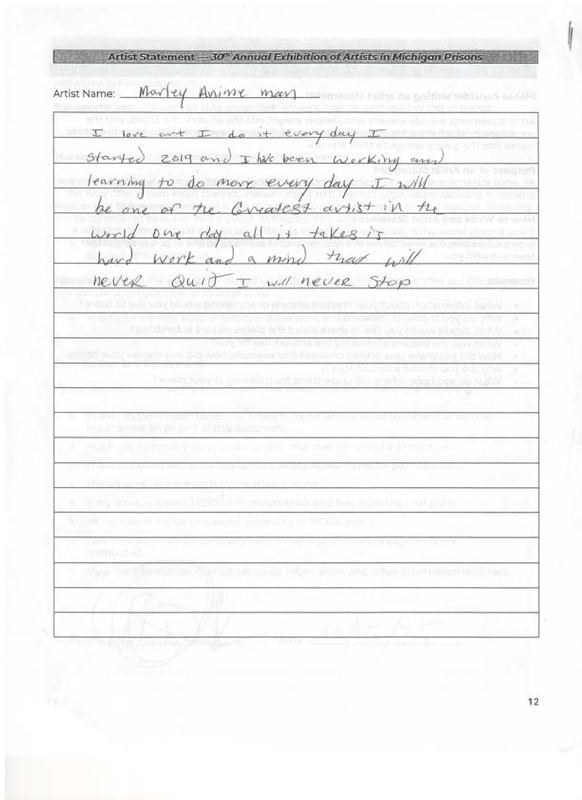 Artist Statement — 30th Annual Exhibition of Artists in Michigan Prisons
Artist Name: Marley Anime man
I love art I do it every day I
started 2019 and I have been working and
learning to do more every day I will
be one of the Greatest artist in the
world one day all it takes is
hard work and a mind that will
never Quit I will never Stop
12